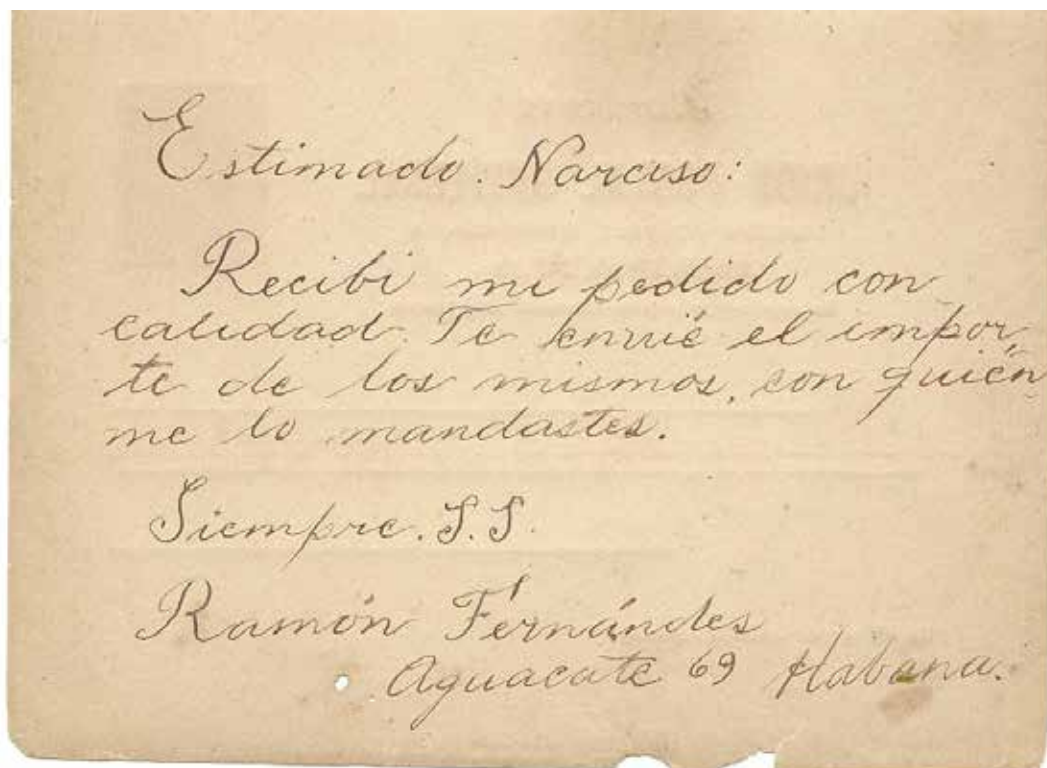 Estimado. Narciso:
Recibi mi pedido con
calidad. Te envié el impor,
te de los mismos, con quién
me lo mandastes.
Siempre. S.S.
Ramón Férnándes
Aguacate 69 Habana.